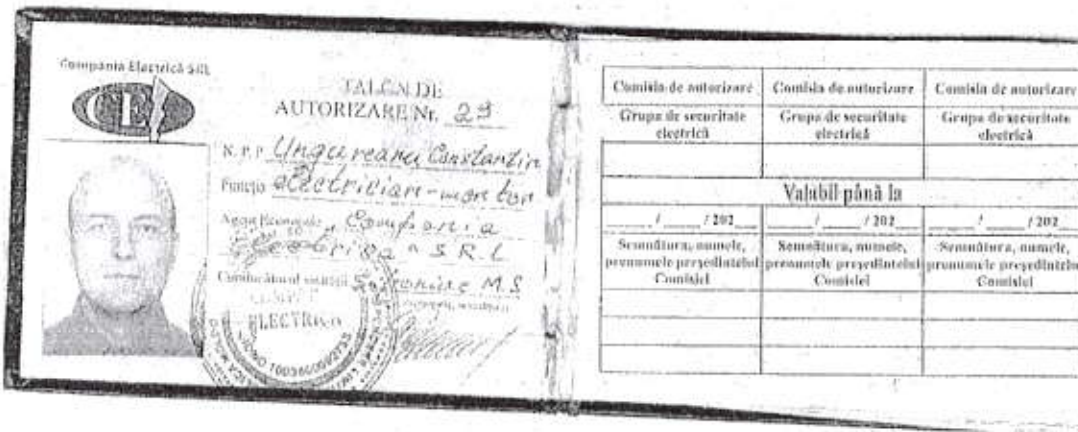 Compania Electrică SRL
CE
TALON DE
AUTORIZARE Nr. 29
N.P.P Ungureanu Constantin
Funcția electrician-montor
Agent Economic „Compania
Electrica" S.R.L
Conducătorul unității M.S
ELECTRICA
Comisia de autorizare Comisia de autorizare Comisia de autorizare
Grupa de securitate electrică Grupa de securitate electrică Grupa de securitate electrică
Valabil până la
___/___/202_ ___/___/202_ ___/___/202_
Semnătura, numele, prenumele președintelui Comisiei Semnătura, numele, prenumele președintelui Comisiei Semnătura, numele, prenumele președintelui Comisiei